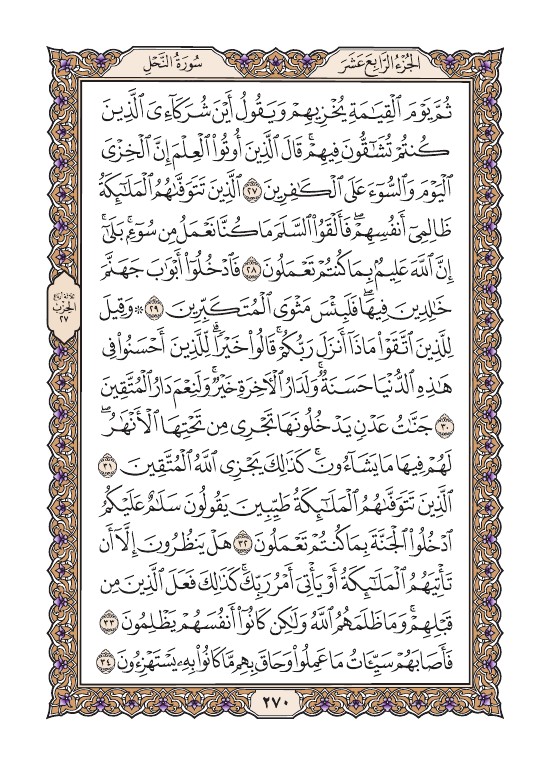 الجُزْءُ الرَّابِعَ عَشَرَ
سُورَةُ النَّحْلِ
ثُمَّ يَوْمَ ٱلْقِيَـٰمَةِ يُخْزِيهِمْ وَيَقُولُ أَيْنَ شُرَكَآءِىَ ٱلَّذِينَ
كُنتُمْ تُشَـٰٓقُّونَ فِيهِمْ ۚ قَالَ ٱلَّذِينَ أُوتُوا۟ ٱلْعِلْمَ إِنَّ ٱلْخِزْىَ
ٱلْيَوْمَ وَٱلسُّوٓءَ عَلَى ٱلْكَـٰفِرِينَ ٢٧ ٱلَّذِينَ تَتَوَفَّىٰهُمُ ٱلْمَلَـٰٓئِكَةُ
ظَالِمِىٓ أَنفُسِهِمْ ۖ فَأَلْقَوُا۟ ٱلسَّلَمَ مَا كُنَّا نَعْمَلُ مِن سُوٓءٍۭ ۚ بَلَىٰٓ
إِنَّ ٱللَّهَ عَلِيمٌۢ بِمَا كُنتُمْ تَعْمَلُونَ ٢٨ فَٱدْخُلُوٓا۟ أَبْوَٰبَ جَهَنَّمَ
خَـٰلِدِينَ فِيهَا ۖ فَلَبِئْسَ مَثْوَى ٱلْمُتَكَبِّرِينَ ٢٩ ۞ وَقِيلَ
لِلَّذِينَ ٱتَّقَوْا۟ مَاذَآ أَنزَلَ رَبُّكُمْ ۚ قَالُوا۟ خَيْرًا ۗ لِّلَّذِينَ أَحْسَنُوا۟ فِى
هَـٰذِهِ ٱلدُّنْيَا حَسَنَةٌ ۚ وَلَدَارُ ٱلْـَٔاخِرَةِ خَيْرٌ ۚ وَلَنِعْمَ دَارُ ٱلْمُتَّقِينَ
٣٠ جَنَّـٰتُ عَدْنٍ يَدْخُلُونَهَا تَجْرِى مِن تَحْتِهَا ٱلْأَنْهَـٰرُ ۖ
لَهُمْ فِيهَا مَا يَشَآءُونَ ۚ كَذَٰلِكَ يَجْزِى ٱللَّهُ ٱلْمُتَّقِينَ ٣١
ٱلَّذِينَ تَتَوَفَّىٰهُمُ ٱلْمَلَـٰٓئِكَةُ طَيِّبِينَ ۙ يَقُولُونَ سَلَـٰمٌ عَلَيْكُمُ
ٱدْخُلُوا۟ ٱلْجَنَّةَ بِمَا كُنتُمْ تَعْمَلُونَ ٣٢ هَلْ يَنظُرُونَ إِلَّآ أَن
تَأْتِيَهُمُ ٱلْمَلَـٰٓئِكَةُ أَوْ يَأْتِىَ أَمْرُ رَبِّكَ ۚ كَذَٰلِكَ فَعَلَ ٱلَّذِينَ مِن
قَبْلِهِمْ ۚ وَمَا ظَلَمَهُمُ ٱللَّهُ وَلَـٰكِن كَانُوٓا۟ أَنفُسَهُمْ يَظْلِمُونَ ٣٣
فَأَصَابَهُمْ سَيِّـَٔاتُ مَا عَمِلُوا۟ وَحَاقَ بِهِم مَّا كَانُوا۟ بِهِۦ يَسْتَهْزِءُونَ ٣٤
الحِزْب
٢٧
٢٧٠